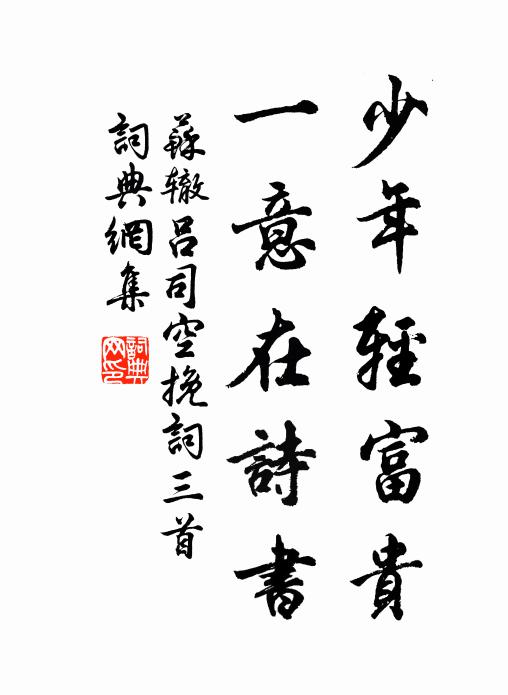 少年輕富貴
一意在詩書
蘇辙吕司空挽詞三首
詞典網集
詞典网印